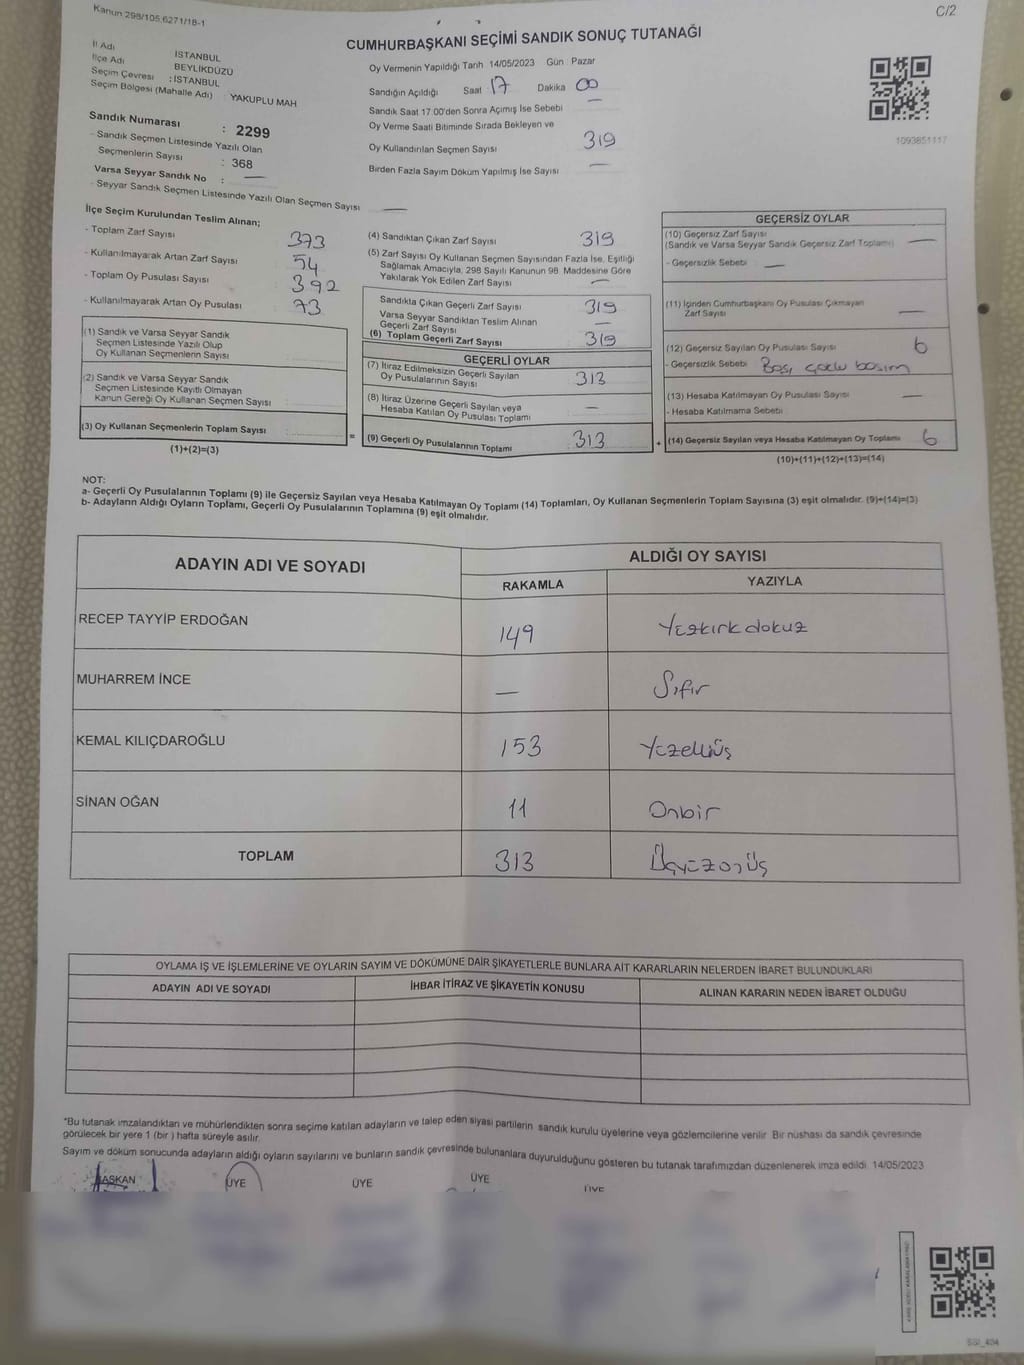 Kanun 298/105,6271/18-1
C/2
CUMHURBAŞKANI SEÇİMİ SANDIK SONUÇ TUTANAĞI
İl Adı İSTANBUL
İlçe Adı BEYLİKDÜZÜ
Seçim Çevresi : İSTANBUL
Seçim Bölgesi (Mahalle Adı) : YAKUPLU MAH
Sandık Numarası : 2299
- Sandık Seçmen Listesinde Yazılı Olan
Seçmenlerin Sayısı : 368
Varsa Seyyar Sandık No : —
- Seyyar Sandık Seçmen Listesinde Yazılı Olan Seçmen Sayısı —
Oy Vermenin Yapıldığı Tarih 14/05/2023 Gün Pazar
Sandığın Açıldığı Saat : 17 Dakika 00
Sandık Saat 17:00'den Sonra Açımış İse Sebebi —
Oy Verme Saati Bitiminde Sırada Bekleyen ve
Oy Kullandırılan Seçmen Sayısı 319
Birden Fazla Sayım Döküm Yapılmış İse Sayısı —
1093851117
İlçe Seçim Kurulundan Teslim Alınan;
- Toplam Zarf Sayısı 373
- Kullanılmayarak Artan Zarf Sayısı 54
- Toplam Oy Pusulası Sayısı 392
- Kullanılmayarak Artan Oy Pusulası 73
(1) Sandık ve Varsa Seyyar Sandık
Seçmen Listesinde Yazılı Olup
Oy Kullanan Seçmenlerin Sayısı
(2) Sandık ve Varsa Seyyar Sandık
Seçmen Listesinde Kayıtlı Olmayan
Kanun Gereği Oy Kullanan Seçmen Sayısı
(3) Oy Kullanan Seçmenlerin Toplam Sayısı
(1)+(2)=(3)
=
(4) Sandıktan Çıkan Zarf Sayısı 319
(5) Zarf Sayısı Oy Kullanan Seçmen Sayısından Fazla İse, Eşitliği
Sağlamak Amacıyla, 298 Sayılı Kanunun 98. Maddesine Göre
Yakılarak Yok Edilen Zarf Sayısı —
Sandıkta Çıkan Geçerli Zarf Sayısı 319
Varsa Seyyar Sandıktan Teslim Alınan
Geçerli Zarf Sayısı —
(6) Toplam Geçerli Zarf Sayısı 319
GEÇERLİ OYLAR
(7) İtiraz Edilmeksizin Geçerli Sayılan
Oy Pusulalarının Sayısı 313
(8) İtiraz Üzerine Geçerli Sayılan veya
Hesaba Katılan Oy Pusulası Toplamı —
(9) Geçerli Oy Pusulalarının Toplamı 313
+
GEÇERSİZ OYLAR
(10) Geçersiz Zarf Sayısı
(Sandık ve Varsa Seyyar Sandık Geçersiz Zarf Toplamı) —
- Geçersizlik Sebebi : —
(11) İçinden Cumhurbaşkanı Oy Pusulası Çıkmayan
Zarf Sayısı —
(12) Geçersiz Sayılan Oy Pusulası Sayısı 6
- Geçersizlik Sebebi
(13) Hesaba Katılmayan Oy Pusulası Sayısı —
- Hesaba Katılmama Sebebi
(14) Geçersiz Sayılan veya Hesaba Katılmayan Oy Toplamı 6
(10)+(11)+(12)+(13)=(14)
NOT:
a- Geçerli Oy Pusulalarının Toplamı (9) ile Geçersiz Sayılan veya Hesaba Katılmayan Oy Toplamı (14) Toplamları, Oy Kullanan Seçmenlerin Toplam Sayısına (3) eşit olmalıdır. (9)+(14)=(3)
b- Adayların Aldığı Oyların Toplamı, Geçerli Oy Pusulalarının Toplamına (9) eşit olmalıdır.
ADAYIN ADI VE SOYADI
ALDIĞI OY SAYISI
RAKAMLA YAZIYLA
RECEP TAYYİP ERDOĞAN 149 Yüzkırkdokuz
MUHARREM İNCE — Sıfır
KEMAL KILIÇDAROĞLU 153 Yüzelliüç
SİNAN OĞAN 11 Onbir
TOPLAM 313 Üçyüzonüç
OYLAMA İŞ VE İŞLEMLERİNE VE OYLARIN SAYIM VE DÖKÜMÜNE DAİR ŞİKAYETLERLE BUNLARA AİT KARARLARIN NELERDEN İBARET BULUNDUKLARI
ADAYIN ADI VE SOYADI İHBAR İTİRAZ VE ŞİKAYETİN KONUSU ALINAN KARARIN NEDEN İBARET OLDUĞU
*Bu tutanak imzalandıktan ve mühürlendikten sonra seçime katılan adayların ve talep eden siyasi partilerin sandık kurulu üyelerine veya gözlemcilerine verilir. Bir nüshası da sandık çevresinde
görülecek bir yere 1 (bir) hafta süreyle asılır.
Sayım ve döküm sonucunda adayların aldığı oyların sayılarını ve bunların sandık çevresinde bulunanlara duyurulduğunu gösteren bu tutanak tarafımızdan düzenlenerek imza edildi. 14/05/2023
BAŞKAN ÜYE ÜYE ÜYE ÜYE